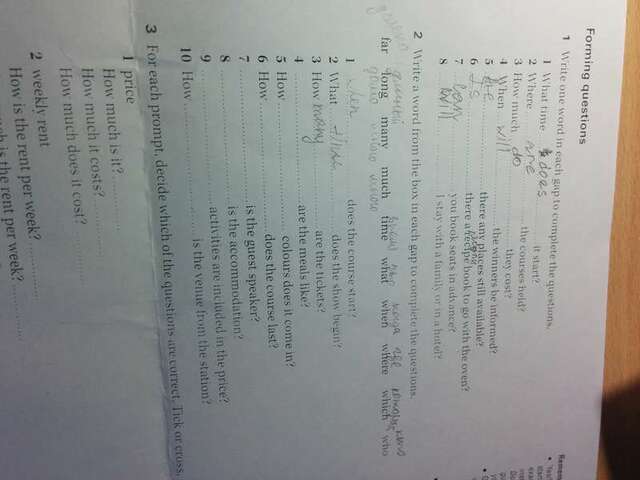 Forming questions
1 Write one word in each gap to complete the questions.
1 What time does it start?
2 Where are the courses held?
3 How much do they cost?
4 When will the winners be informed?
5 Are there any places still available?
6 Is there a recipe book to go with the oven?
7 you book seats in advance?
8 Will I stay with a family or in a hotel?
2 Write a word from the box in each gap to complete the questions.
far long many much time what when where which who
1 When does the course start?
2 What time does the show begin?
3 How many are the tickets?
4 are the meals like?
5 How colours does it come in?
6 How does the course last?
7 is the guest speaker?
8 is the accommodation?
9 activities are included in the price?
10 How is the venue from the station?
3 For each prompt, decide which of the questions are correct. Tick or cross.
1 price
How much is it?
How much it costs?
How much does it cost?
2 weekly rent
How is the rent per week?
is the rent per week?